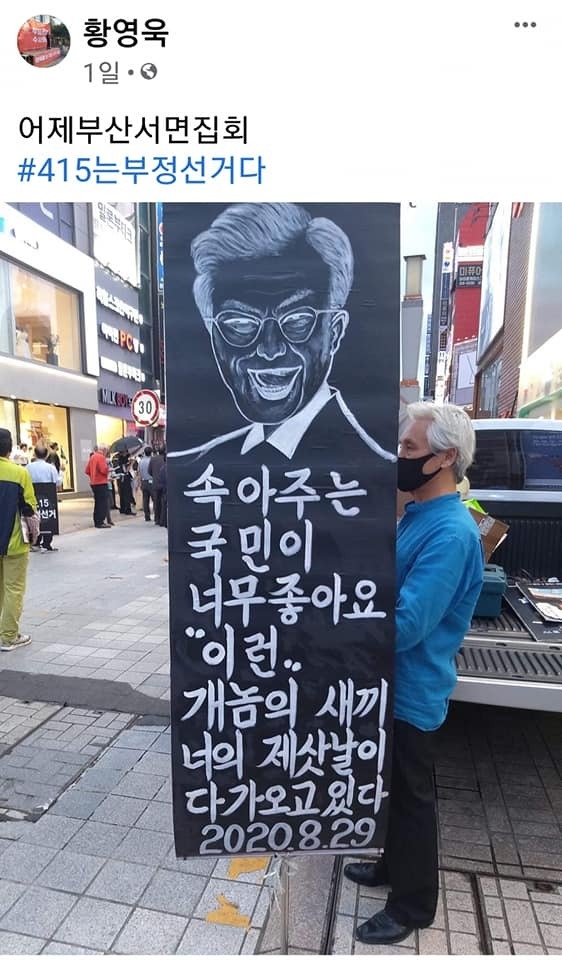 황영욱
1일
어제부산서면집회
#415는부정선거다
30
속아주는
국민이
너무좋아요
"이런"
개놈의 새끼
너의 제삿날이
다가오고있다
2020.8.29
PC
MILK